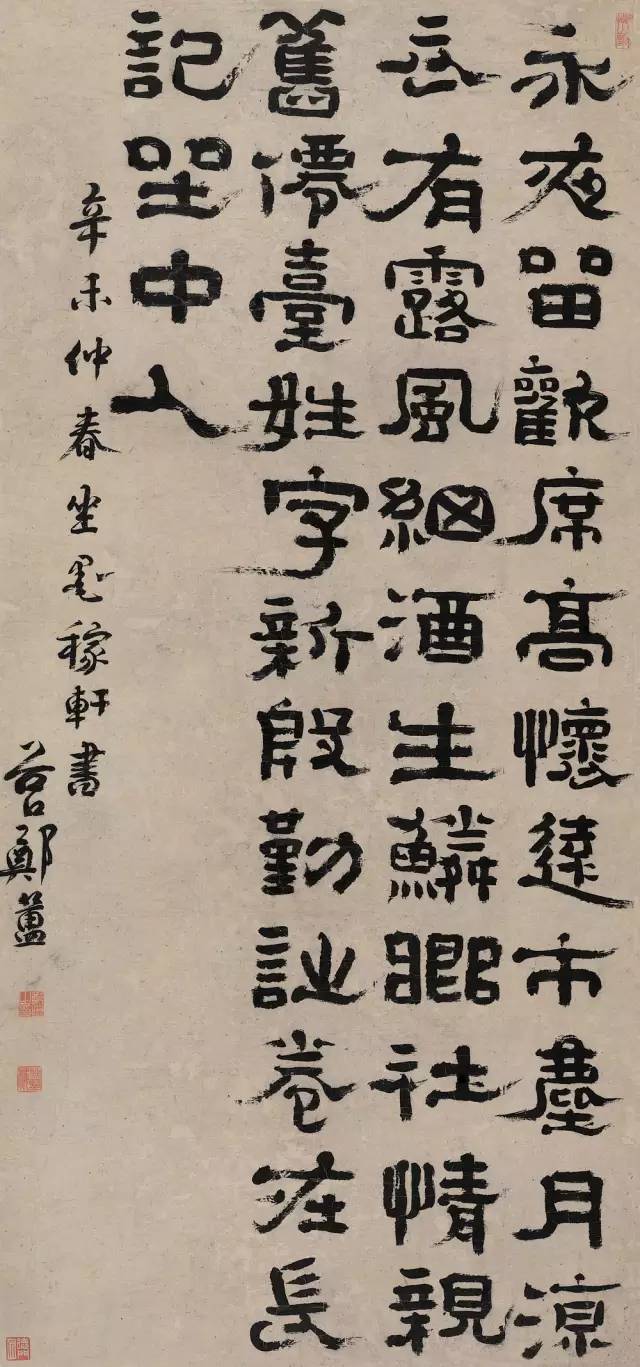 永夜留歡席高懷遠市塵月涼
衣有露風細酒生鱗鄉社情親
舊僊臺姓字新殷勤詩卷在長
記坐中人
辛未仲春坐墨稼軒書
谷口鄭簠